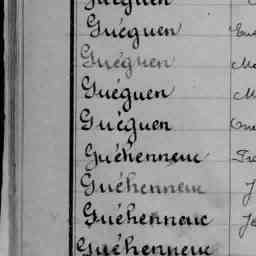 Guéguen
Guéguen
Guéguen
Guéguen
Guéguen
Guéhenneuc
Guéhenneuc
Guéhenneuc
Guéhenneuc